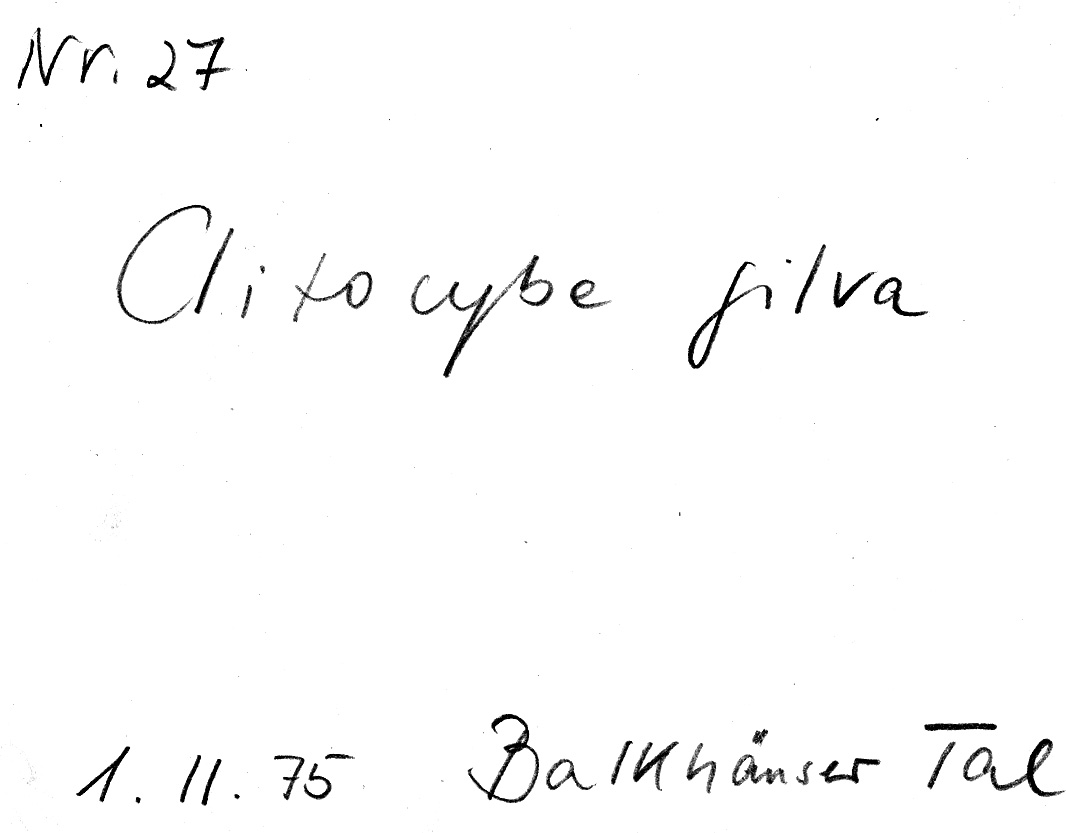 Nr. 27
Clitocybe gilva
1. 11. 75 Balkhäuser Tal